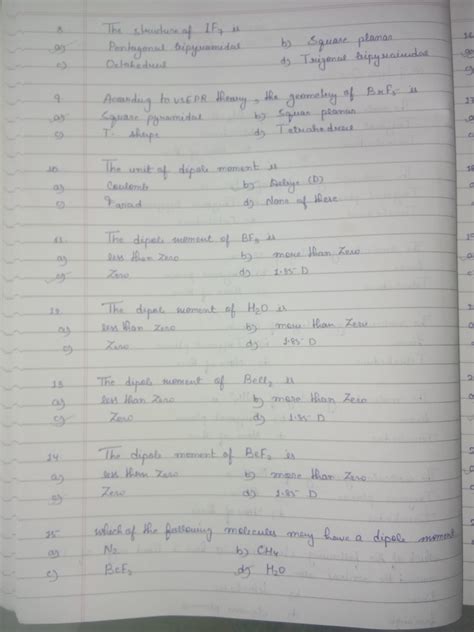 8. The structure of IF7 is
a) Pentagonal bipyramidal b) Square planar
c) Octahedral d) Trigonal bipyramidal
9. According to VSEPR theory, the geometry of BrF5 is
a) Square pyramidal b) Squar planar
c) T' shape d) Tetrahedral
10. The unit of dipole moment is
a) Coulomb b) Debye (D)
c) Farad d) None of these
11. The dipole moment of BF3 is
a) less than Zero b) more than Zero
c) Zero d) 1.85 D
12. The dipol moment of H2O is
a) less than zero b) more than Zero
c) Zero d) 1.85 D
13. The dipole moment of BeCl2 is
a) less than Zero b) more than Zero
c) Zero d) 1.85 D
14. The dipole moment of BeF2 is
a) less than Zero b) more than Zero
c) Zero d) 1.85 D
15 which of the following molecules may have a dipole moment
a) N2 b) CH4
c) BeF2 d) H2O